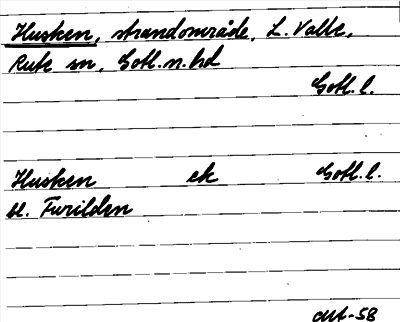 Husken, strandområde, L. Valle,
Rute sn, Gotl.n.hd
Gotl.l.
Husken ek Gotl.l.
bl. Furilden
-58